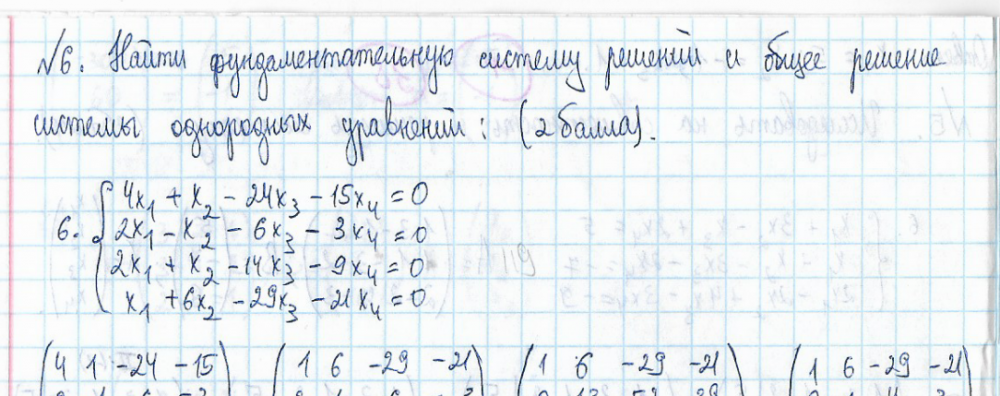 №6. Найти фундаментальную систему решений и общее решение
системы однородных уравнений: (2 балла).
6. { 4x₁ + x₂ - 24x₃ - 15x₄ = 0
2x₁ - x₂ - 6x₃ - 3x₄ = 0
2x₁ + x₂ - 14x₃ - 9x₄ = 0
x₁ + 6x₂ - 29x₃ - 21x₄ = 0
(4 1 -24 -15) (1 6 -29 -21) (1 6 -29 -21) (1 6 -29 -21)